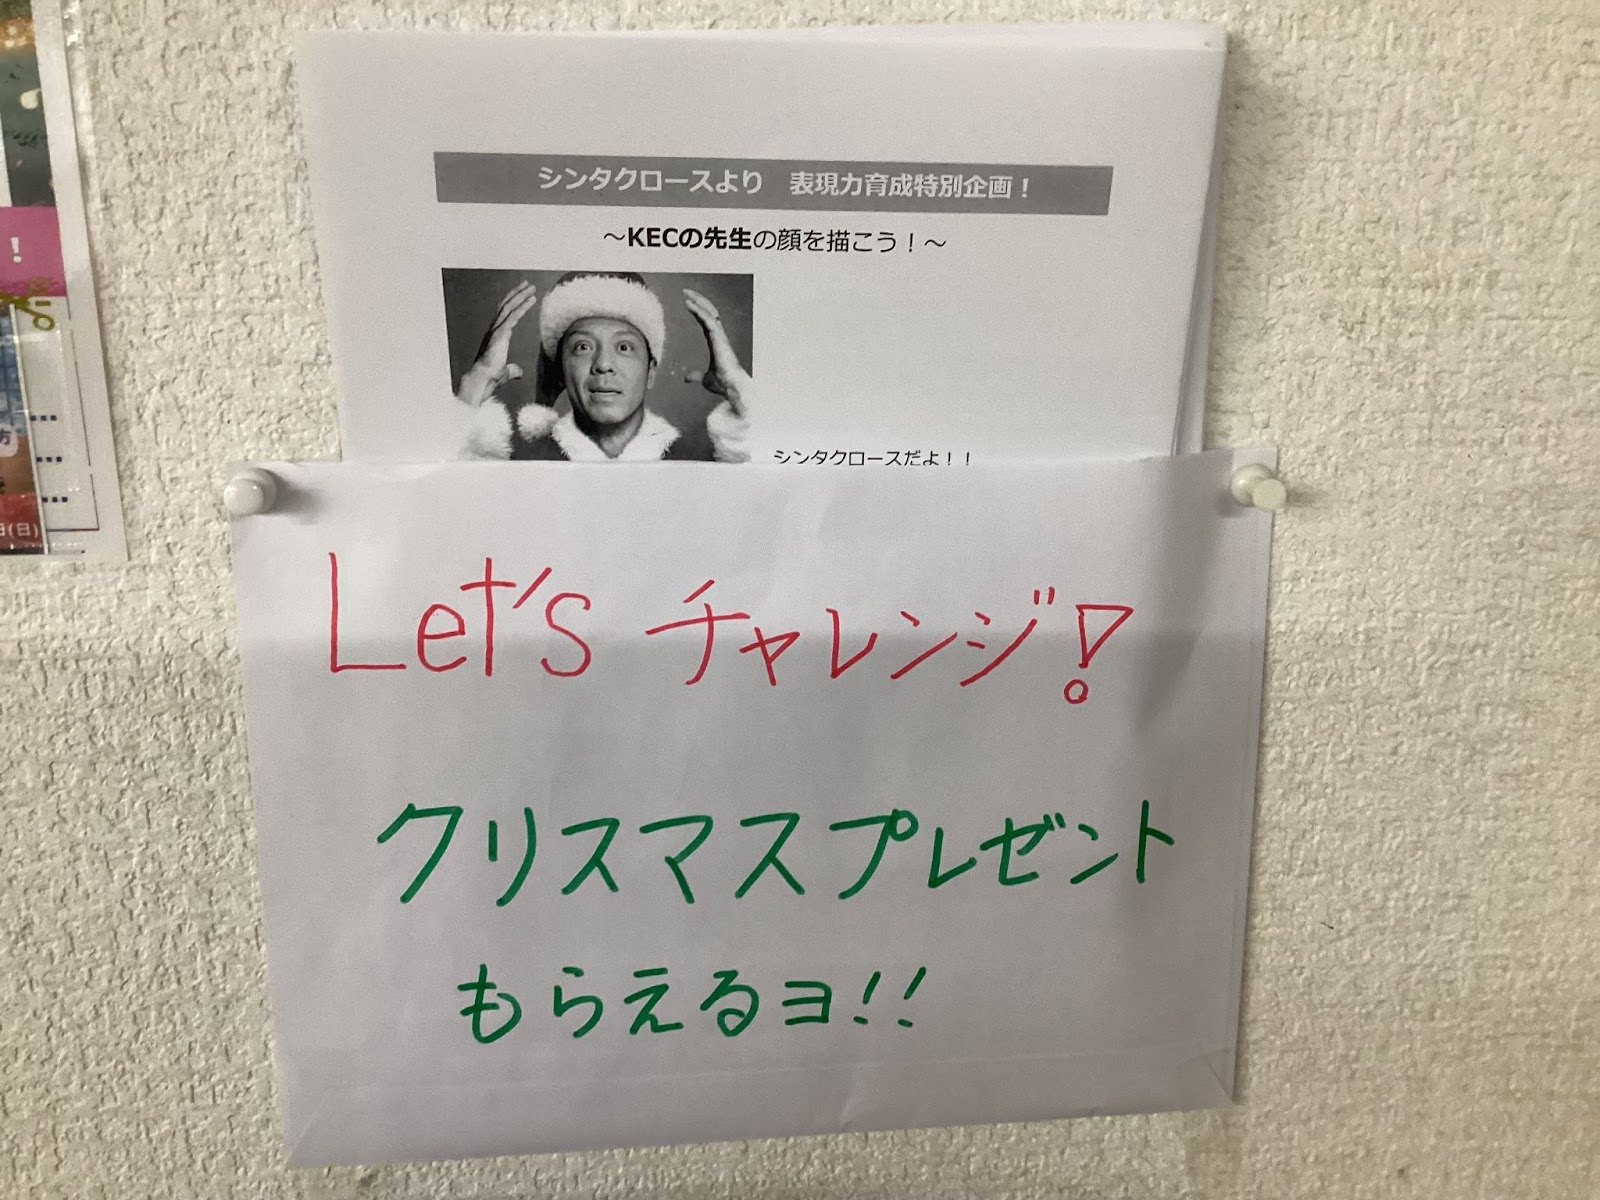 シンタクロースより 表現力育成特別企画！
～KECの先生の顔を描こう！～
シンタクロースだよ！！
Let's チャレンジ！
クリスマスプレゼント
もらえるヨ!!
！
方
(日)